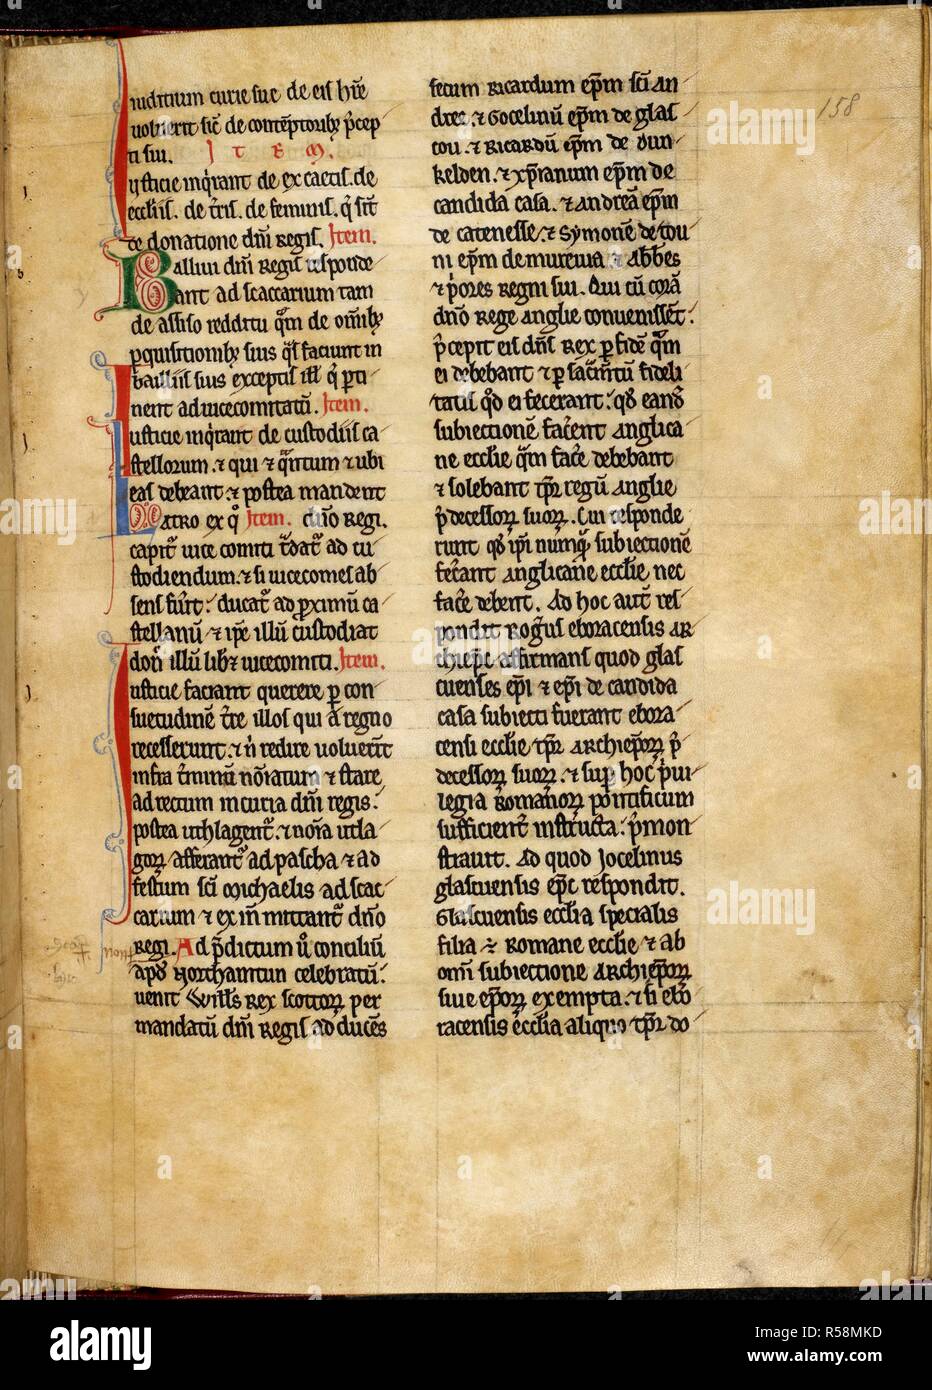 iuditium curie sue de eis hr̄e
uoluerit sic̄ de contēptoribꝫ p̄cep
ti sui. I t e m.
Iusticie inq̇rant de excaetis. de
ecclīis. de t̄ris. de feminis. q̇ sūt
de donatione dn̄i Regis. Item.
Balliui dn̄i Regis responde
ant ad scaccarium tam
de assiso redditu q̄m de om̄ibꝫ
ꝑquisitionibꝫ suis q̄s faciunt in
bailliis suis exceptis ill̄ q̄ ꝑti
nent ad uicecomitatū. Item.
Iusticie inq̇rant de custodiis ca
stellorum. ⁊ qui ⁊ q̄ntum ⁊ ubi
eas debeant. ⁊ postea mandent
Latro ex q̊ Item. dn̄o Regi.
capit᷑ uicecomiti t̄dat᷑ ad cu
stodiendum. ⁊ si uicecomes ab
sens fūit: ducat᷑ ad ꝓximū ca
stellanū ⁊ ip̄e illū custodiat
don̄ illū lib̄ꝫ uicecomiti. Item.
Iusticie faciant querere ꝑ con
suetudinē t̄re illos qui a regno
recesserunt. ⁊ n̄ redire uoluerīt
infra t̄minū no̅ıatum ⁊ stare
ad rectum in curia dn̄i regis:
postea uthlagent᷑. ⁊ no̅ıa utla
goꝝ afferant᷑ ad pascha ⁊ ad
festum sc̄i Michaelis ad scac
carium ⁊ exin̄ mittant᷑ dn̄o
Regi. Ad p̄dictum ů concilīū
apđ Northamtun celebratū:
uenit Will̄s Rex scottoꝝ per
mandatū dn̄i Regis adducēs
secum Ricardum ep̄m sc̄i an
dree. ⁊ Gocelinū ep̄m de glas
cou. ⁊ Ricardū ep̄m de Dun
kelden. ⁊ xp̄ianum ep̄m de
candida casa. ⁊ Andreā ep̄m
de catenesse. ⁊ Symonē de tou
ni ep̄m de mureuia ⁊ Abbēs
⁊ p̄ores Regni sui. Qui cū corā
dn̄o Rege Anglie conuenissēt:
p̄cepit eis dn̄s Rex ꝑ fidē q̄m
ei debebant ⁊ ꝑ sac̄m̄tū fideli
tatis qđ ei fecerant: qđ eanđ
subiectionē fac̄ent Anglica
ne ecclīe q̄m fac̄e debebant
⁊ solebant tp̄r regū Anglie
p̄decessoꝝ suoꝝ. Cui responde
runt qđ ip̄i numq̄ subiectionē
fec̄ant Anglicane ecclīe nec
fac̄e debent. Ad hoc aut̄ res
pondit Rog̊us eboracensis Ar
chiep̄c affirmans quod glas
cuenses ep̄i ⁊ ep̄i de candida
casa subiecti fuerant ebora
censi ecclīe tp̄r Archiep̄oꝝ p̄
decessoꝝ suoꝝ. ⁊ suꝑ hoc p̄ui
legia Romanoꝝ pontificum
sufficient̄ instructa: p̄mon
strauit. Ad quod Jocelinus
glascuensis ep̄c respondit.
Glascuensis ecclīa specialis
filia ÷ Romane ecclīe ⁊ ab
om̄i subiectione Archiep̄oꝝ
siue ep̄oꝝ exempta. ⁊ si ebo
racensis ecclīa aliquo tp̄r do
158
alamy
Image ID: R58MKD
www.alamy.com